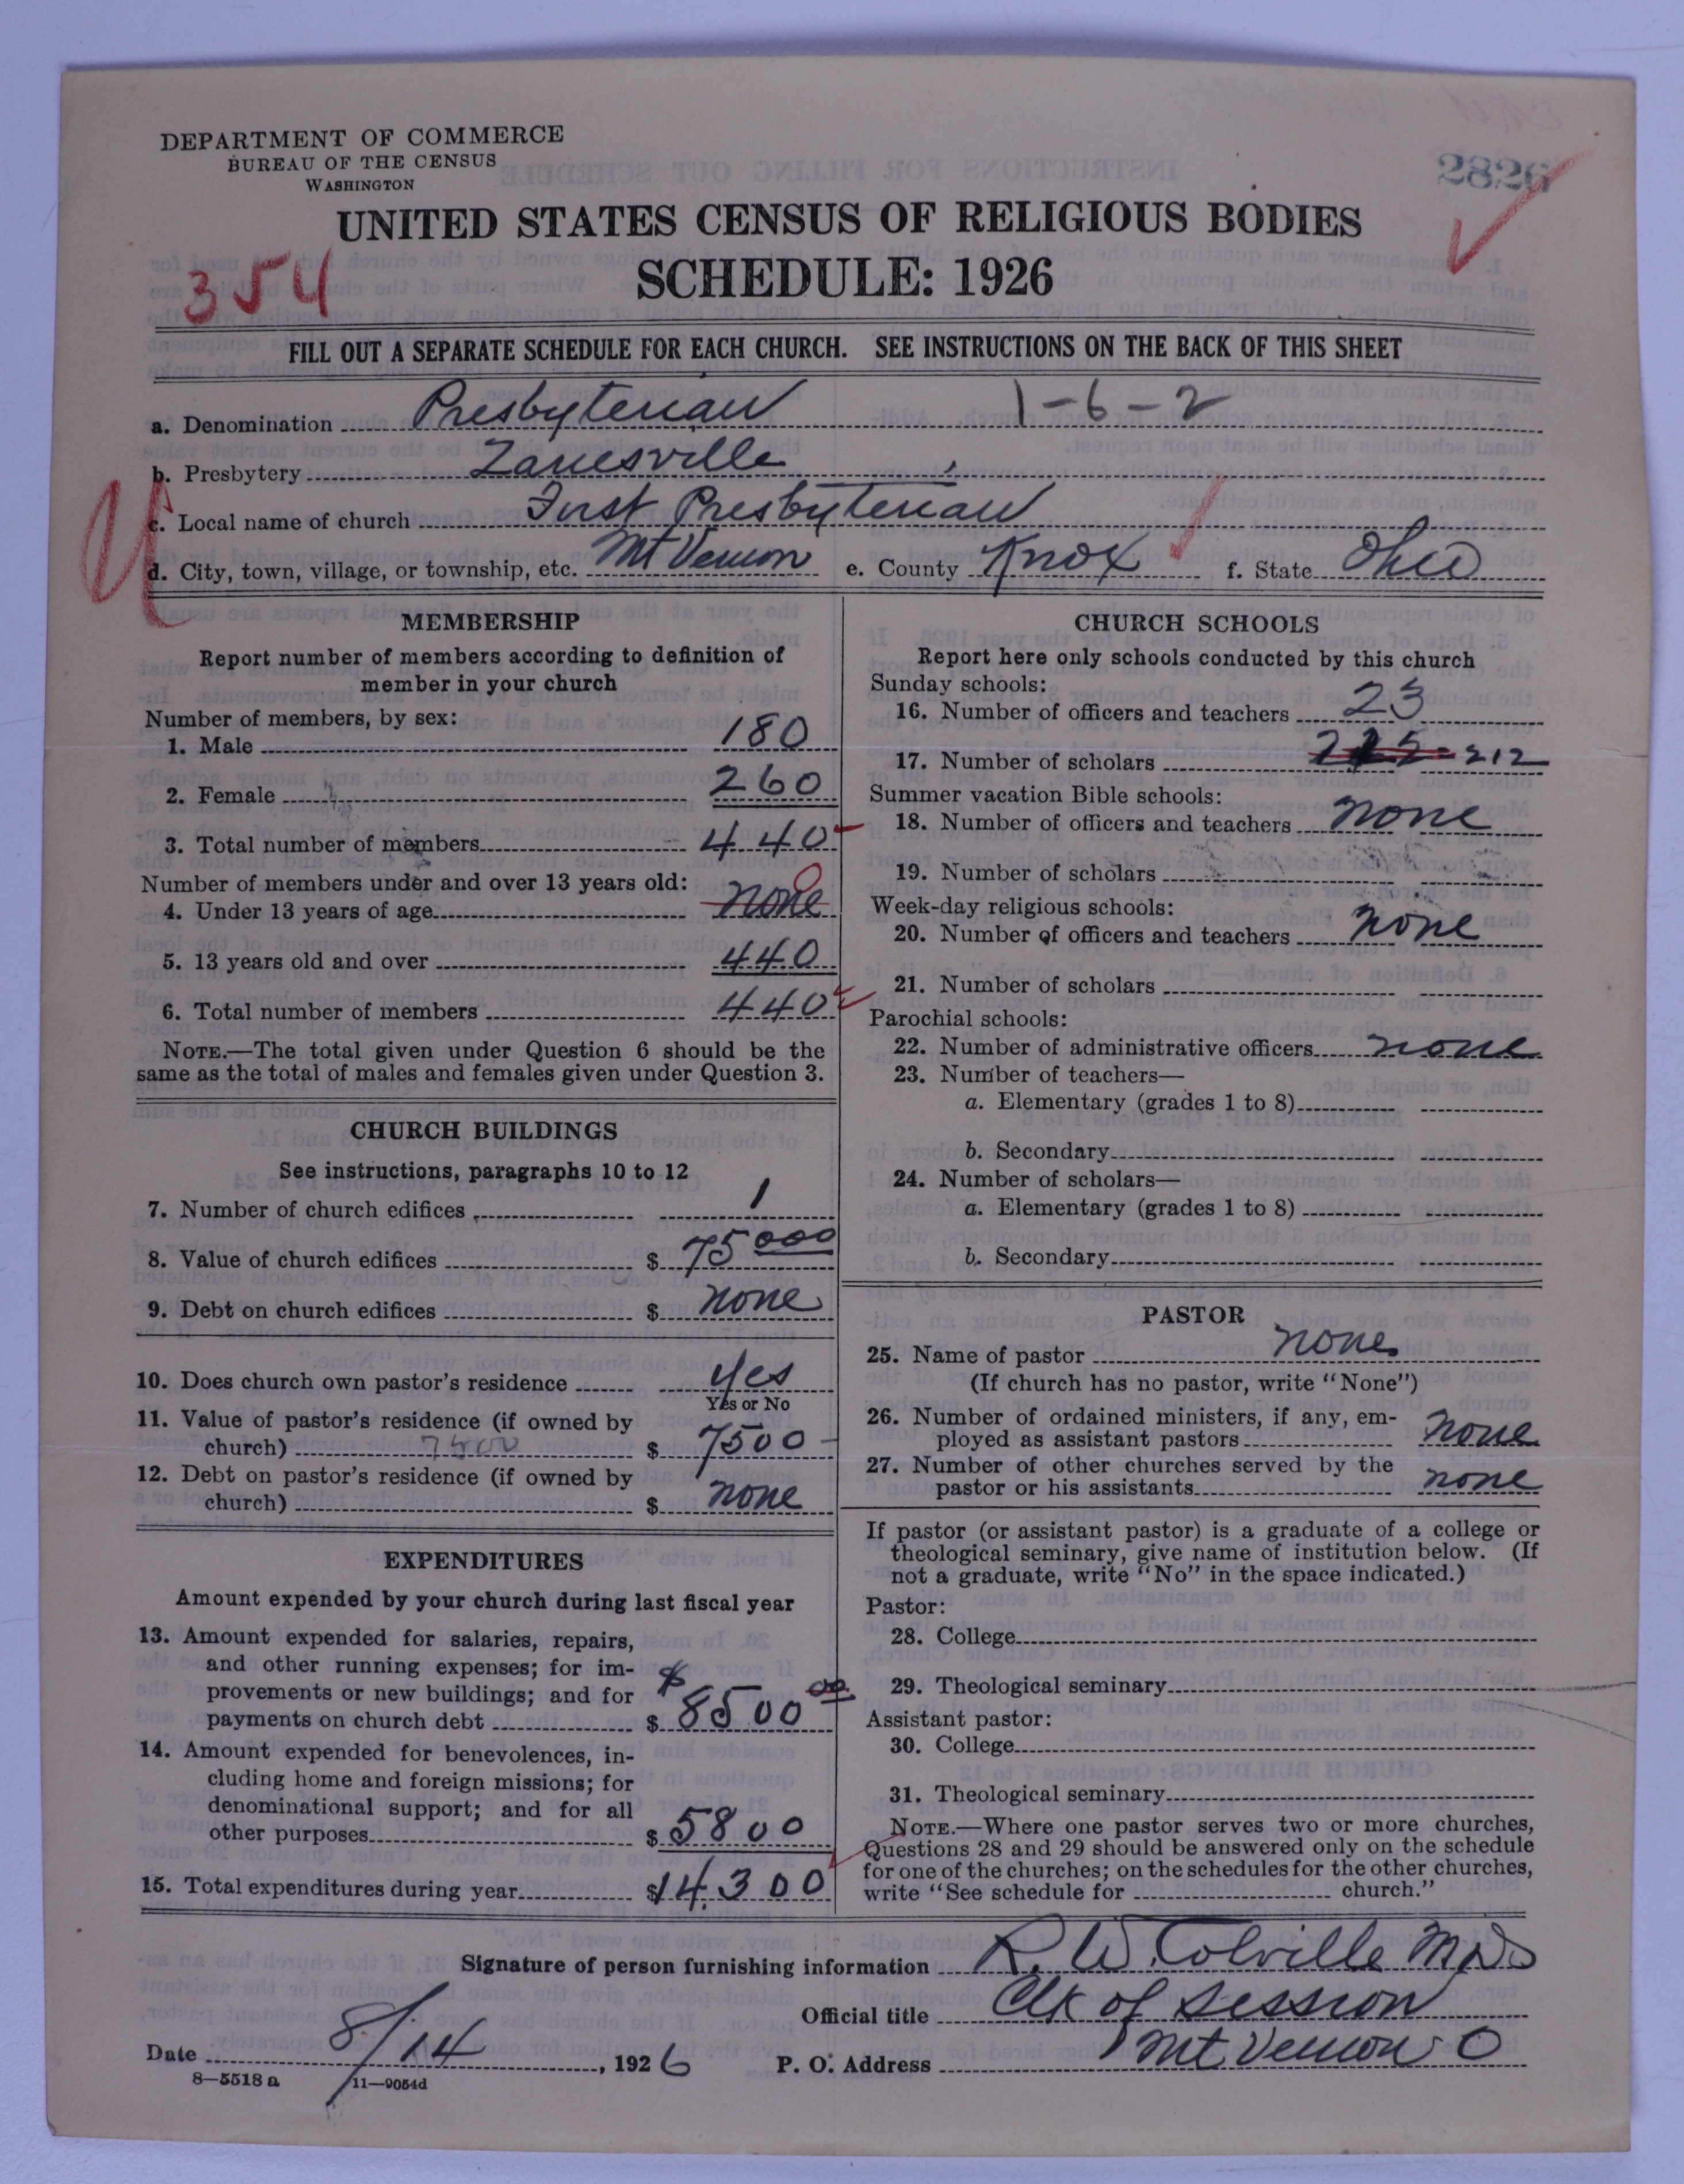 DEPARTMENT OF COMMERCE
BUREAU OF THE CENSUS
WASHINGTON
2826
UNITED STATES CENSUS OF RELIGIOUS BODIES
SCHEDULE: 1926
354
FILL OUT A SEPARATE SCHEDULE FOR EACH CHURCH. SEE INSTRUCTIONS ON THE BACK OF THIS SHEET
a. Denomination Presbyterian 1-6-2
b. Presbytery Zanesville
c. Local name of church First Presbyterian
d. City, town, village, or township, etc. Mt Vernon e. County Knox f. State Ohio
MEMBERSHIP
Report number of members according to definition of
member in your church
Number of members, by sex:
1. Male 180
2. Female 260
3. Total number of members 440
Number of members under and over 13 years old:
4. Under 13 years of age none 0
5. 13 years old and over 440
6. Total number of members 440
NOTE.—The total given under Question 6 should be the
same as the total of males and females given under Question 3.
CHURCH BUILDINGS
See instructions, paragraphs 10 to 12
7. Number of church edifices 1
8. Value of church edifices $ 75000
9. Debt on church edifices $ none
10. Does church own pastor's residence yes
Yes or No
11. Value of pastor's residence (if owned by
church) 7500 $ 7500
12. Debt on pastor's residence (if owned by
church) $ none
EXPENDITURES
Amount expended by your church during last fiscal year
13. Amount expended for salaries, repairs,
and other running expenses; for im-
provements or new buildings; and for
payments on church debt $ $ 8500 00
14. Amount expended for benevolences, in-
cluding home and foreign missions; for
denominational support; and for all
other purposes $ 5800
15. Total expenditures during year $ 14,300
CHURCH SCHOOLS
Report here only schools conducted by this church
Sunday schools:
16. Number of officers and teachers 23
17. Number of scholars 212
Summer vacation Bible schools:
18. Number of officers and teachers none
19. Number of scholars
Week-day religious schools:
20. Number of officers and teachers none
21. Number of scholars
Parochial schools:
22. Number of administrative officers none
23. Number of teachers—
a. Elementary (grades 1 to 8)
b. Secondary
24. Number of scholars—
a. Elementary (grades 1 to 8)
b. Secondary
PASTOR
25. Name of pastor none
(If church has no pastor, write "None")
26. Number of ordained ministers, if any, em-
ployed as assistant pastors none
27. Number of other churches served by the
pastor or his assistants none
If pastor (or assistant pastor) is a graduate of a college or
theological seminary, give name of institution below. (If
not a graduate, write "No" in the space indicated.)
Pastor:
28. College
29. Theological seminary
Assistant pastor:
30. College
31. Theological seminary
NOTE.—Where one pastor serves two or more churches,
Questions 28 and 29 should be answered only on the schedule
for one of the churches; on the schedules for the other churches,
write "See schedule for church."
Signature of person furnishing information R. W. Colville M D
Official title Clk of Session
Date 8/14, 1926 P. O. Address Mt Vernon O
8—5518 a 11—9054d